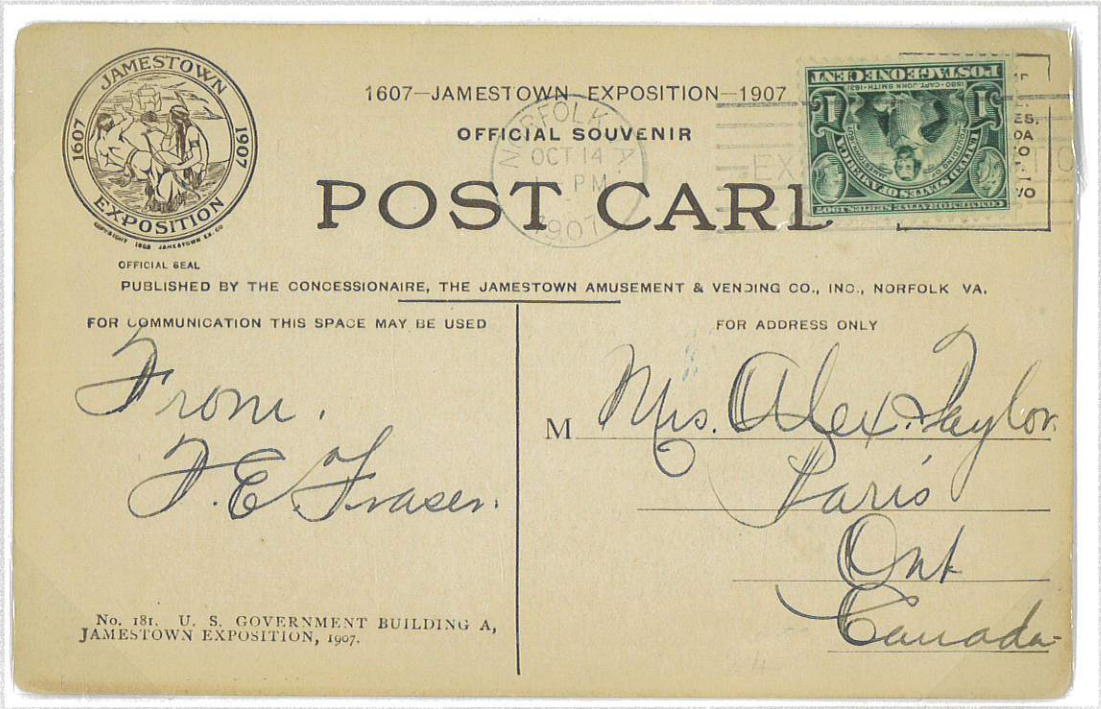 JAMESTOWN
1607 1907
EXPOSITION
COPYRIGHT 1906 JAMESTOWN EX. CO
OFFICIAL SEAL
1607—JAMESTOWN EXPOSITION—1907
OFFICIAL SOUVENIR
POST CARD
NORFOLK VA
OCT 14
1 - PM
1907
POSTAGE ONE CENT
1580-CAPT. JOHN SMITH-1631
1 1
UNITED STATES OF AMERICA
COMMEMORATIVE SERIES 1907
PUBLISHED BY THE CONCESSIONAIRE, THE JAMESTOWN AMUSEMENT & VENDING CO., INC., NORFOLK VA.
FOR COMMUNICATION THIS SPACE MAY BE USED
From.
F. E. Fraser.
No. 181. U. S. GOVERNMENT BUILDING A,
JAMESTOWN EXPOSITION, 1907.
FOR ADDRESS ONLY
M Mrs. Alex. Taylor.
Paris
Ont
Canada